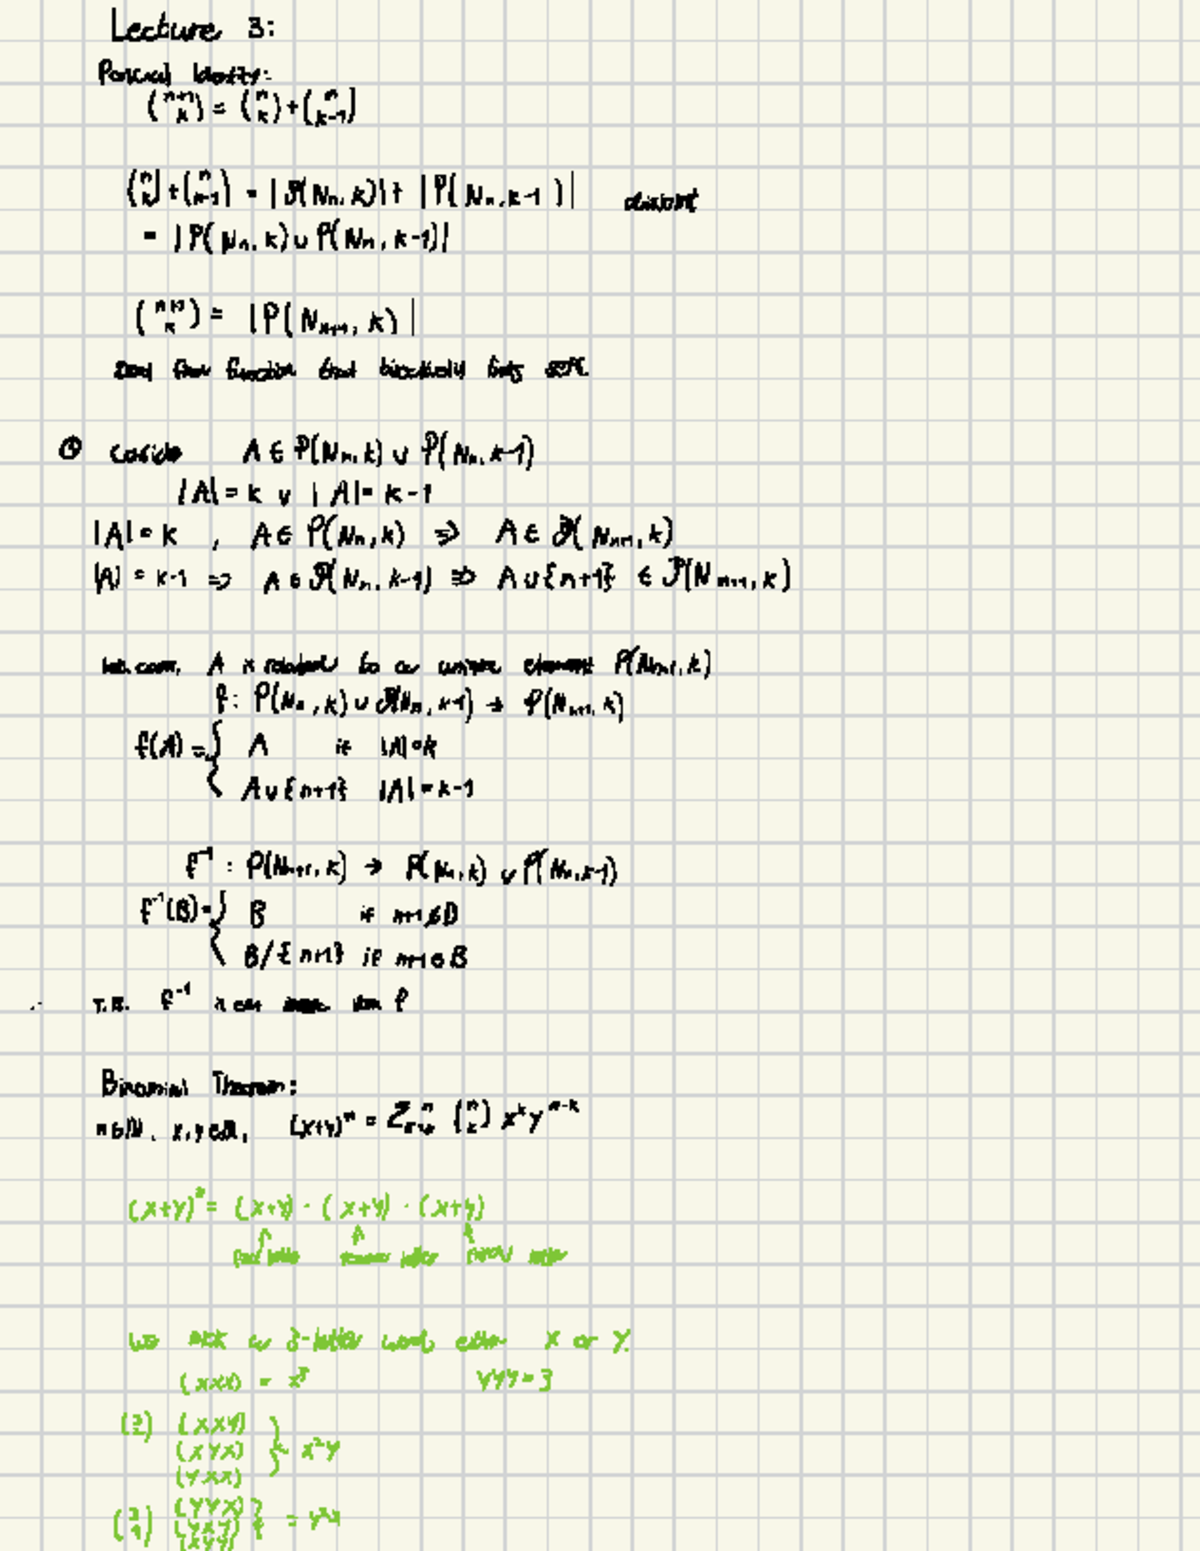 Lecture 3:
Pascal Identity:
(n+1 k) = (n k) + (n k-1)
(n k) + (n k-1) = |P(Nn, k)| + |P(Nn, k-1)| disjoint
= |P(Nn, k) ∪ P(Nn, k-1)|
(n+1 k) = |P(Nn+1, k)|
function that bijectively
① A ∈ P(Nn, k) ∪ P(Nn, k-1)
|A| = k ∨ |A| = k-1
|A| = k , A ∈ P(Nn, k) ⇒ A ∈ P(Nn+1, k)
|A| = k-1 ⇒ A ∈ P(Nn, k-1) ⇒ A ∪ {n+1} ∈ P(Nn+1, k)
A is related to a unique element P(Nn+1, k)
f: P(Nn, k) ∪ P(Nn, k-1) → P(Nn+1, k)
f(A) = { A if |A| = k
A ∪ {n+1} |A| = k-1
f⁻¹ : P(Nn+1, k) → P(Nn, k) ∪ P(Nn, k-1)
f⁻¹(B) = { B if n+1 ∉ B
B/{n+1} if n+1 ∈ B
f⁻¹ f
Binomial Theorem:
n ∈ N, x, y ∈ R, (x+y)ⁿ = Σ (n k) xᵏ yⁿ⁻ᵏ
(x+y)³ = (x+y) · (x+y) · (x+y)
first letter second letter third letter
we 3-letter words either x or y.
(xxx) = x³ yyy = 3
(3 2) (xxy)
(xyx) } x²y
(yxx)
(3 1) (yyx)
(yxy) } = y²x
(xyy)